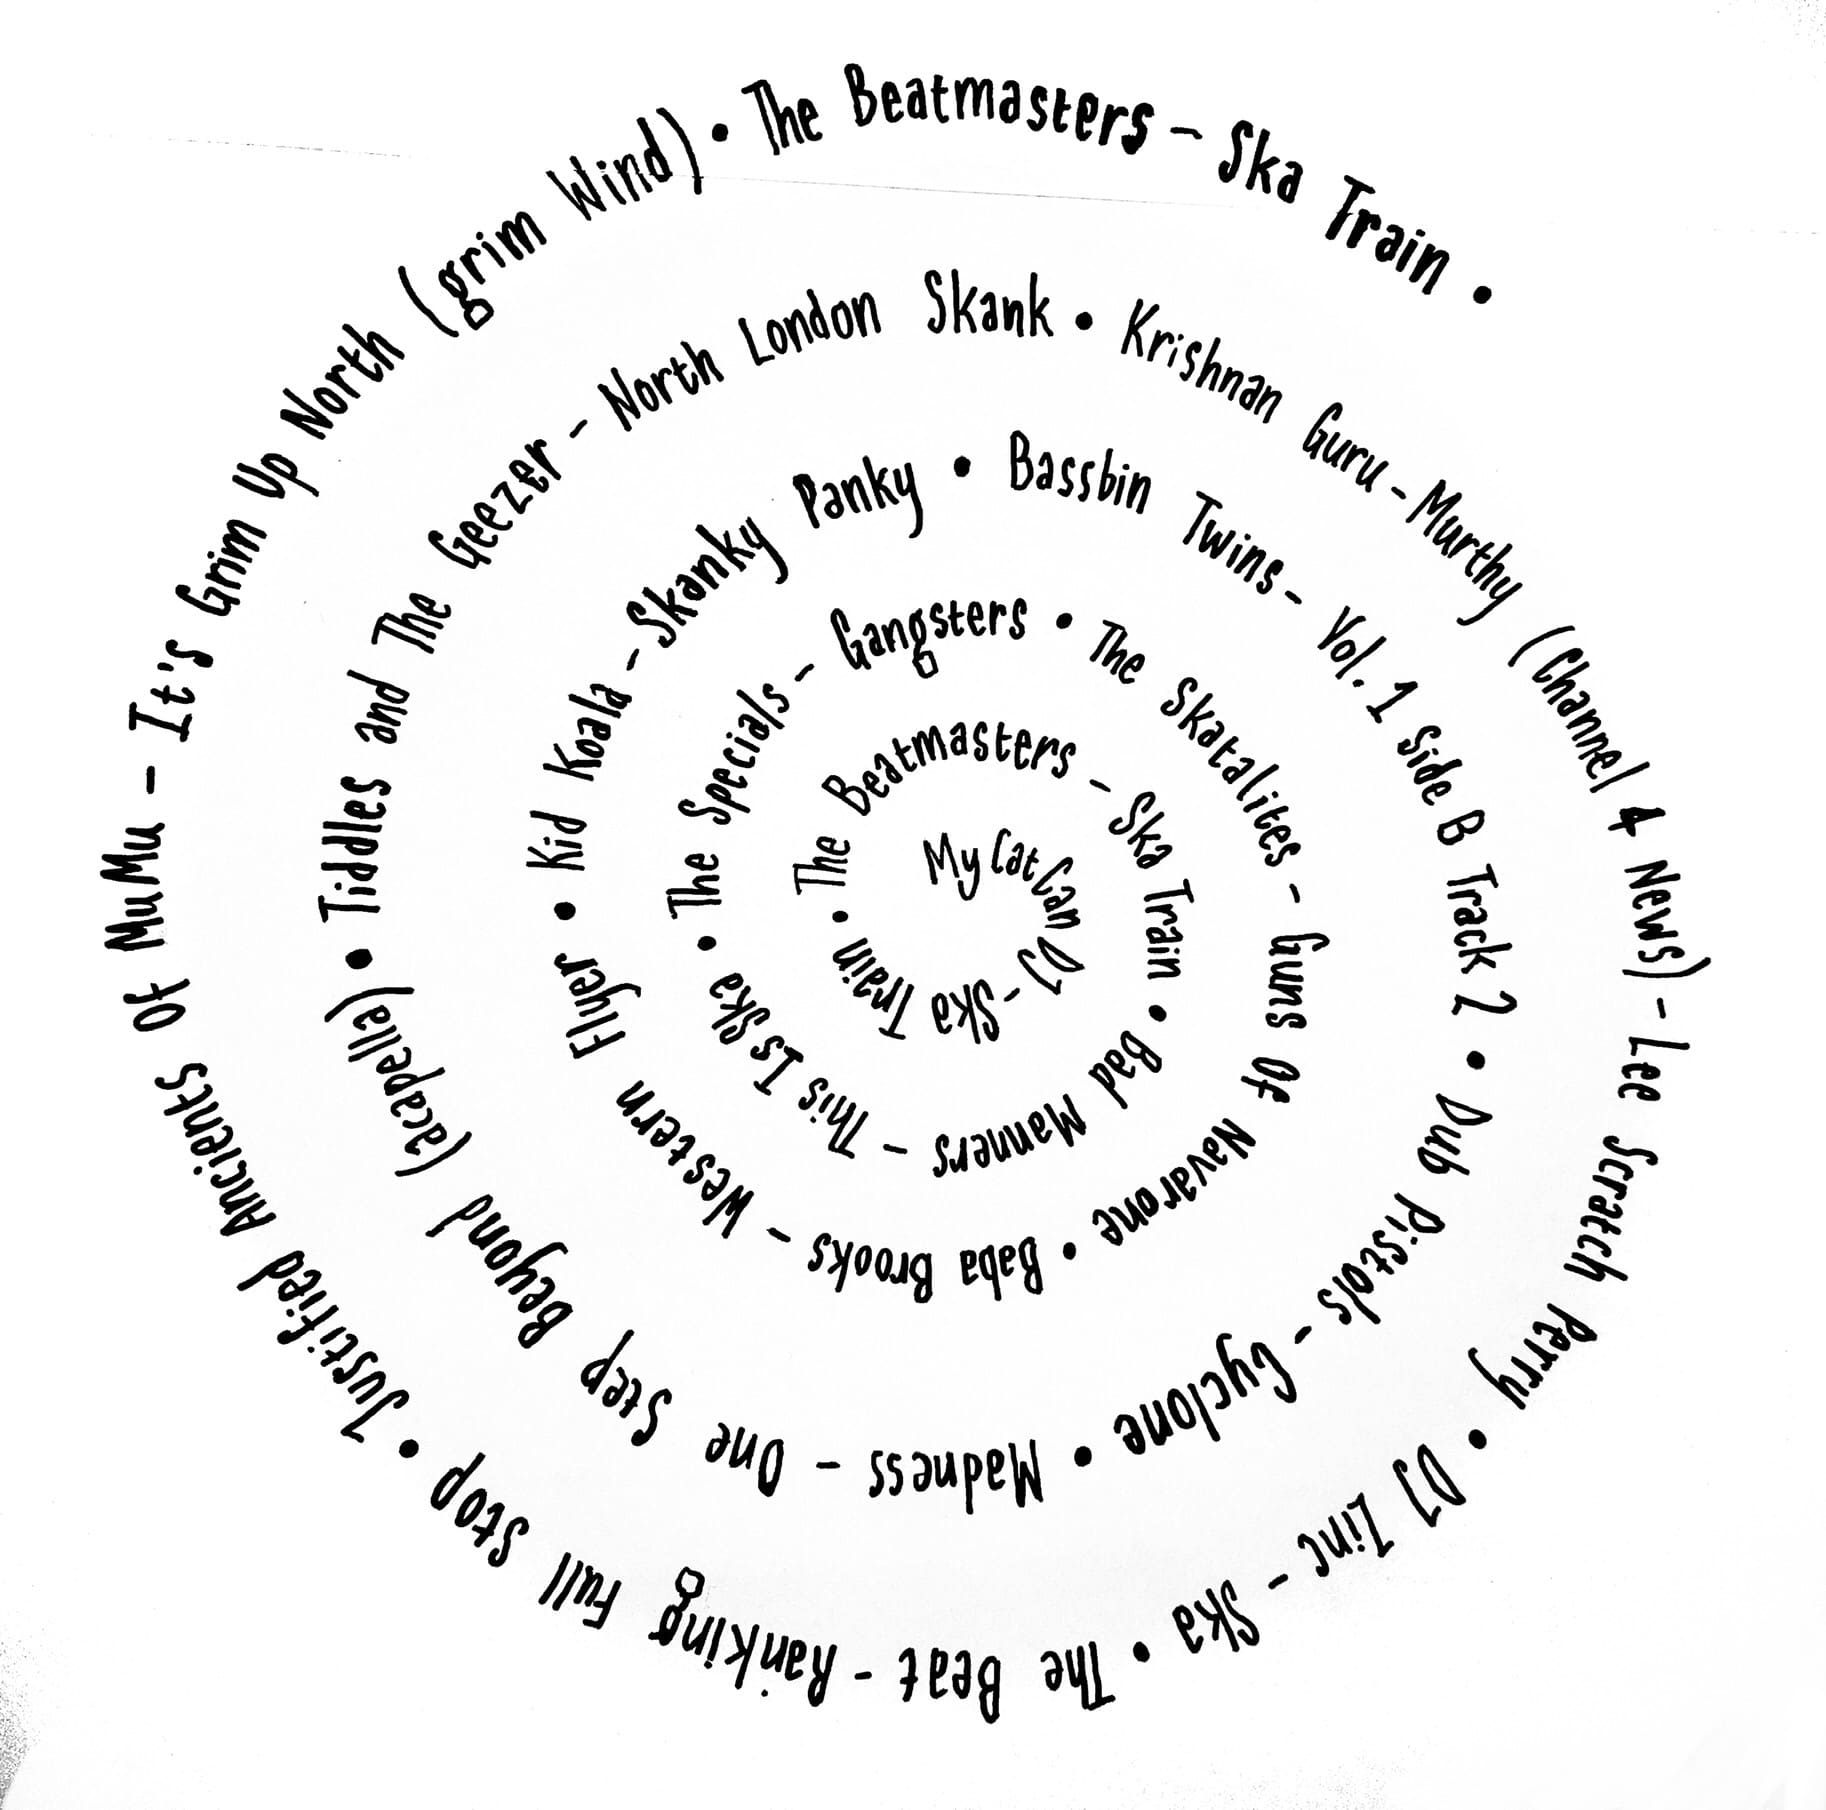 My Cat Can DJ - Ska Train •
The Beatmasters - Ska Train •
Bad Manners - This Is Ska •
The Specials - Gangsters •
The Skatalites - Guns Of Navarone •
Baba Brooks - Western Flyer •
Kid Koala - Skanky Panky •
Bassbin Twins - Vol. 1 Side B Track 2 •
Dub Pistols - Cyclone •
Madness - One Step Beyond (acapella) •
Tiddles and The Geezer - North London Skank •
Krishnan Guru-Murthy (Channel 4 News) - Lee Scratch Perry •
DJ Zinc - Ska •
The Beat - Ranking Full Stop •
Justified Ancients Of MuMu - It's Grim Up North (grim Wind) •
The Beatmasters - Ska Train •